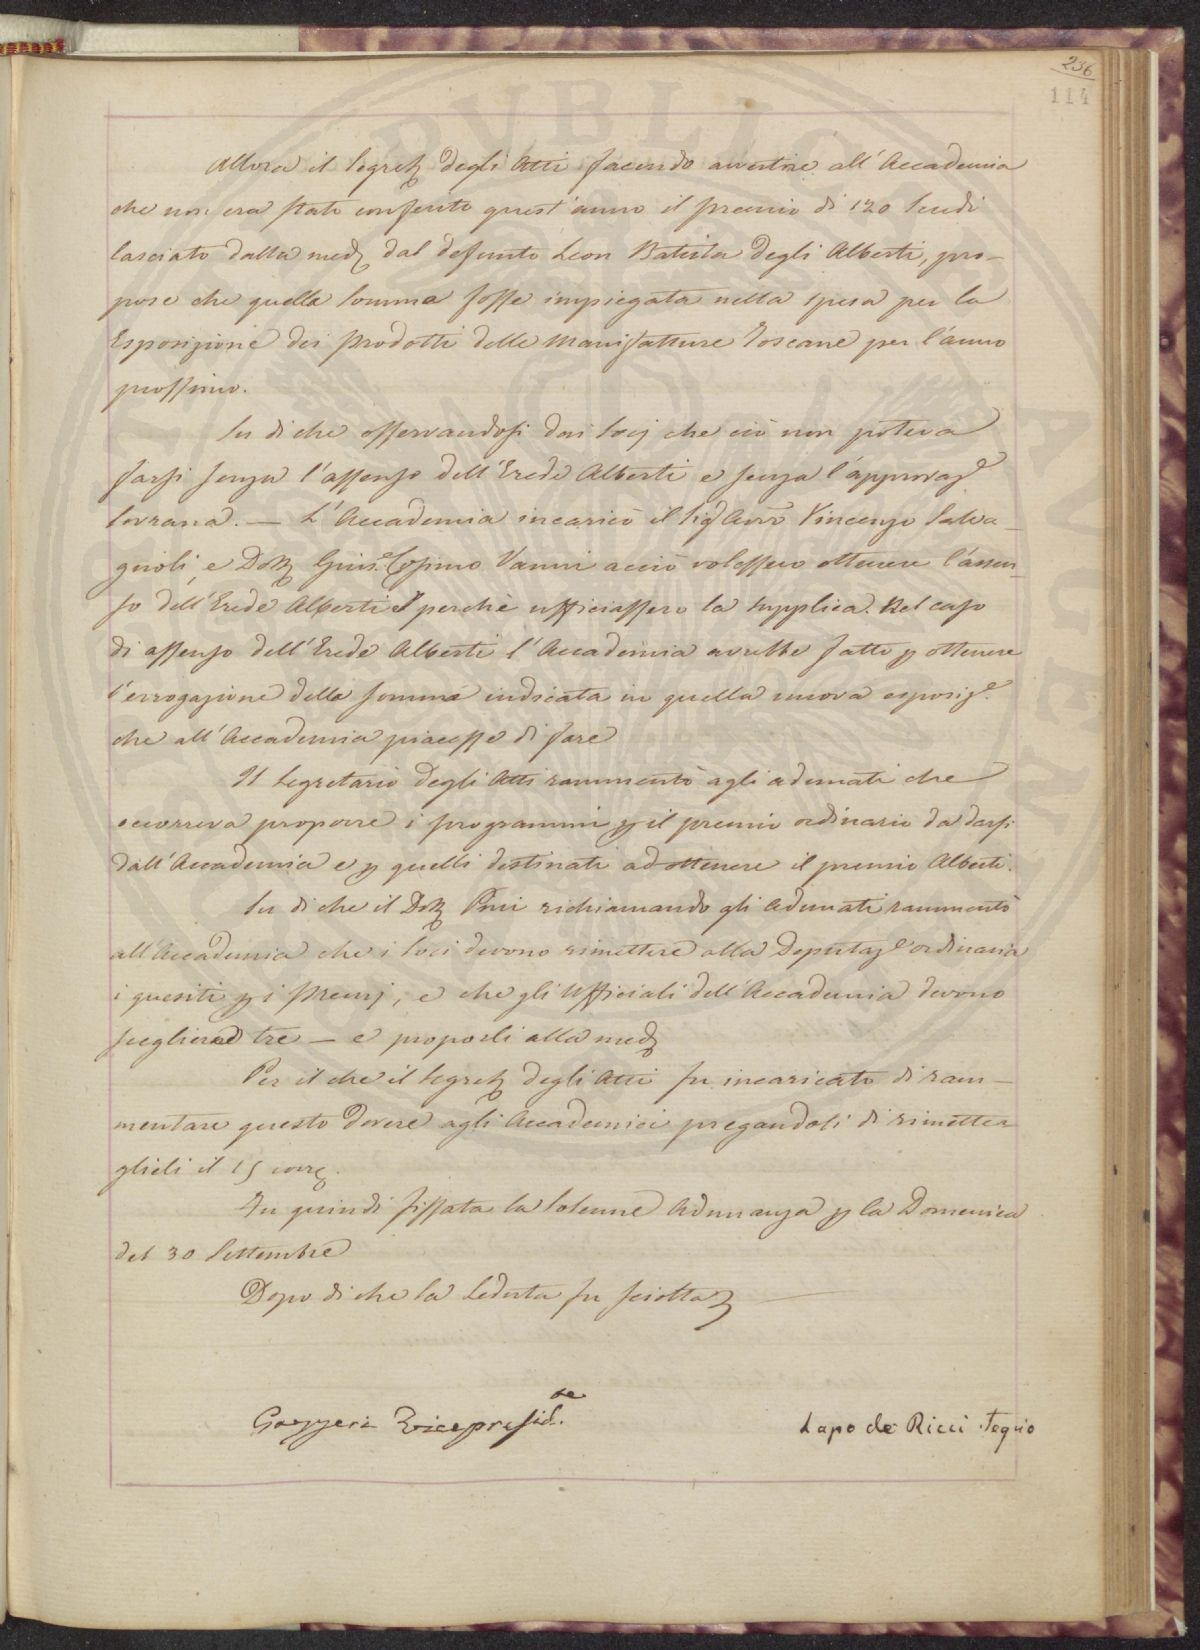 236
114
Allora il Segret. degli Atti facendo avvertire all'Accademia
che non era stato conferito quest'anno il premio di 120 Scudi
lasciato dalla med. dal defunto Leon Batista degli Alberti, pro-
pose che quella Somma fosse impiegata nella spesa per la
Esposizione dei prodotti delle Manifatture Toscane per l'anno
prossimo.
Su di che osservandosi dai Socj che ciò non poteva
farsi senza l'assenso dell'Erede Alberti e senza l'approvaz.e
Sovrana. — L'Accademia incaricò il Sig. Avv. Vincenzo Salva-
gnoli, e Dott. Gius.e Cosimo Vanni acciò volessero ottenere l'assen-
so dell'Erede Alberti e perchè ufficiassero la supplica. Nel caso
di assenso dell'Erede Alberti l'Accademia avrebbe fatto p ottenere
l'errogazione della somma indicata in quella nuova esposiz.e
che all'Accademia piacesse di fare
Il Segretario degli Atti rammentò agli adunati che
occorreva proporre i programmi p il premio ordinario da darsi
dall'Accademia e p quelli destinati ad ottenere il premio Alberti.
Su di che il Dott. richiamando gli Adunati rammentò
all'Accademia che i Soci devono rimettere alla Deputaz.e ordinaria
i quesiti p i Premj, e che gli Ufficiali dell'Accademia devono
sceglierne tre — e proporli alla med.
Per il che il Segret. degli Atti fu incaricato di ram-
mentare questo dovere agli Accademici pregandoli di rimetter
glieli il 15 corr.
Fu quindi fissata la Solenne Adunanza p la Domenica
del 30 Settembre
Dopo di che la Seduta fu sciolta —
Gazzeri Vicepresid.te
Lapo de Ricci Segrio